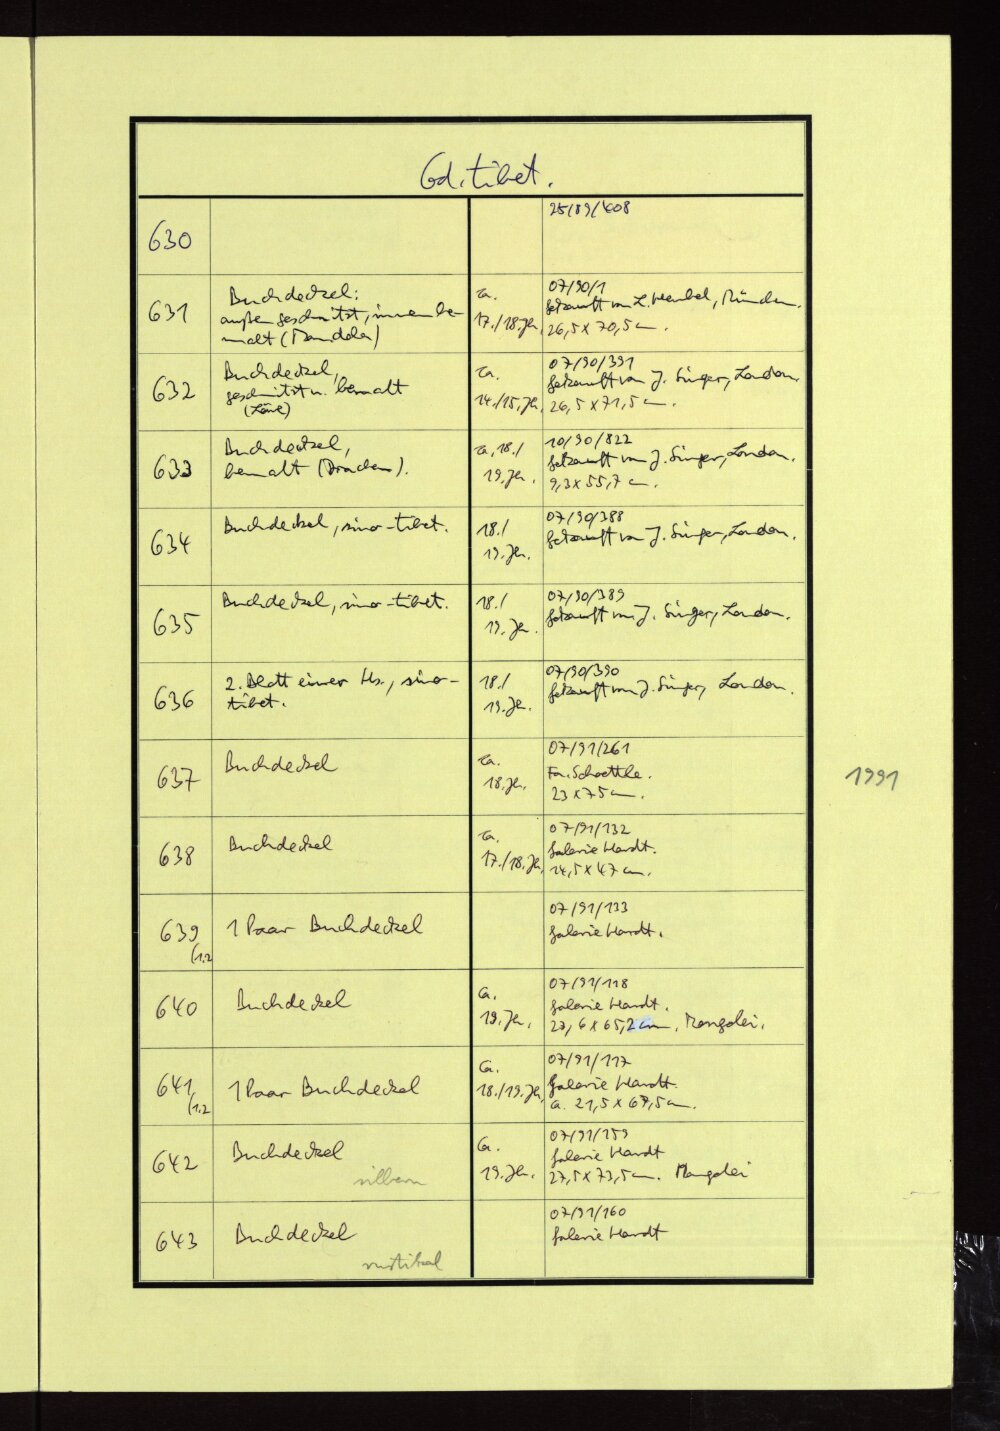 Cod. tibet.
630
25/89/408
631
Buchdeckel:
außen geschnitzt, innen be-
malt (Mandala)
ca.
17./18. Jh.
07/90/1
Gekauft von L. Hembel, München.
26,5 x 70,5 cm.
632
Buchdeckel,
geschnitzt u. bemalt
(Löwe)
ca.
14./15. Jh.
07/90/391
Gekauft von J. Singer, London.
26,5 x 71,5 cm.
633
Buchdeckel,
bemalt (Drachen).
ca. 18./
19. Jh.
10/90/822
Gekauft von J. Singer, London.
9,3 x 55,7 cm.
634
Buchdeckel, sino-tibet.
18./
19. Jh.
07/90/388
Gekauft von J. Singer, London.
635
Buchdeckel, sino-tibet.
18./
19. Jh.
07/90/389
Gekauft von J. Singer, London.
636
2. Blatt einer Hs., sino-
tibet.
18./
19. Jh.
07/90/390
Gekauft von J. Singer, London.
637
Buchdeckel
ca.
18. Jh.
07/91/261
Fa. Schoettle.
23 x 75 cm.
1991
638
Buchdeckel
ca.
17./18. Jh.
07/91/132
Galerie Hardt.
14,5 x 47 cm.
639
(1.2
1 Paar Buchdeckel
07/91/133
Galerie Hardt.
640
Buchdeckel
ca.
19. Jh.
07/91/118
Galerie Hardt.
27,6 x 65,2 cm. Mongolei.
641
(1.2
1 Paar Buchdeckel
ca.
18./19. Jh.
07/91/117
Galerie Hardt.
ca. 21,5 x 67,5 cm.
642
Buchdeckel
silbern
ca.
19. Jh.
07/91/159
Galerie Hardt
27,5 x 73,5 cm. Mongolei
643
Buchdeckel
rustikal
07/91/160
Galerie Hardt